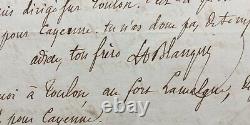 dirige sur Toulon.
pour Cayenne. tu n'as donc pas de temps
adieu, ton frère L A Blanqui
à Toulon au fort Lamalgue,
pour Cayenne.